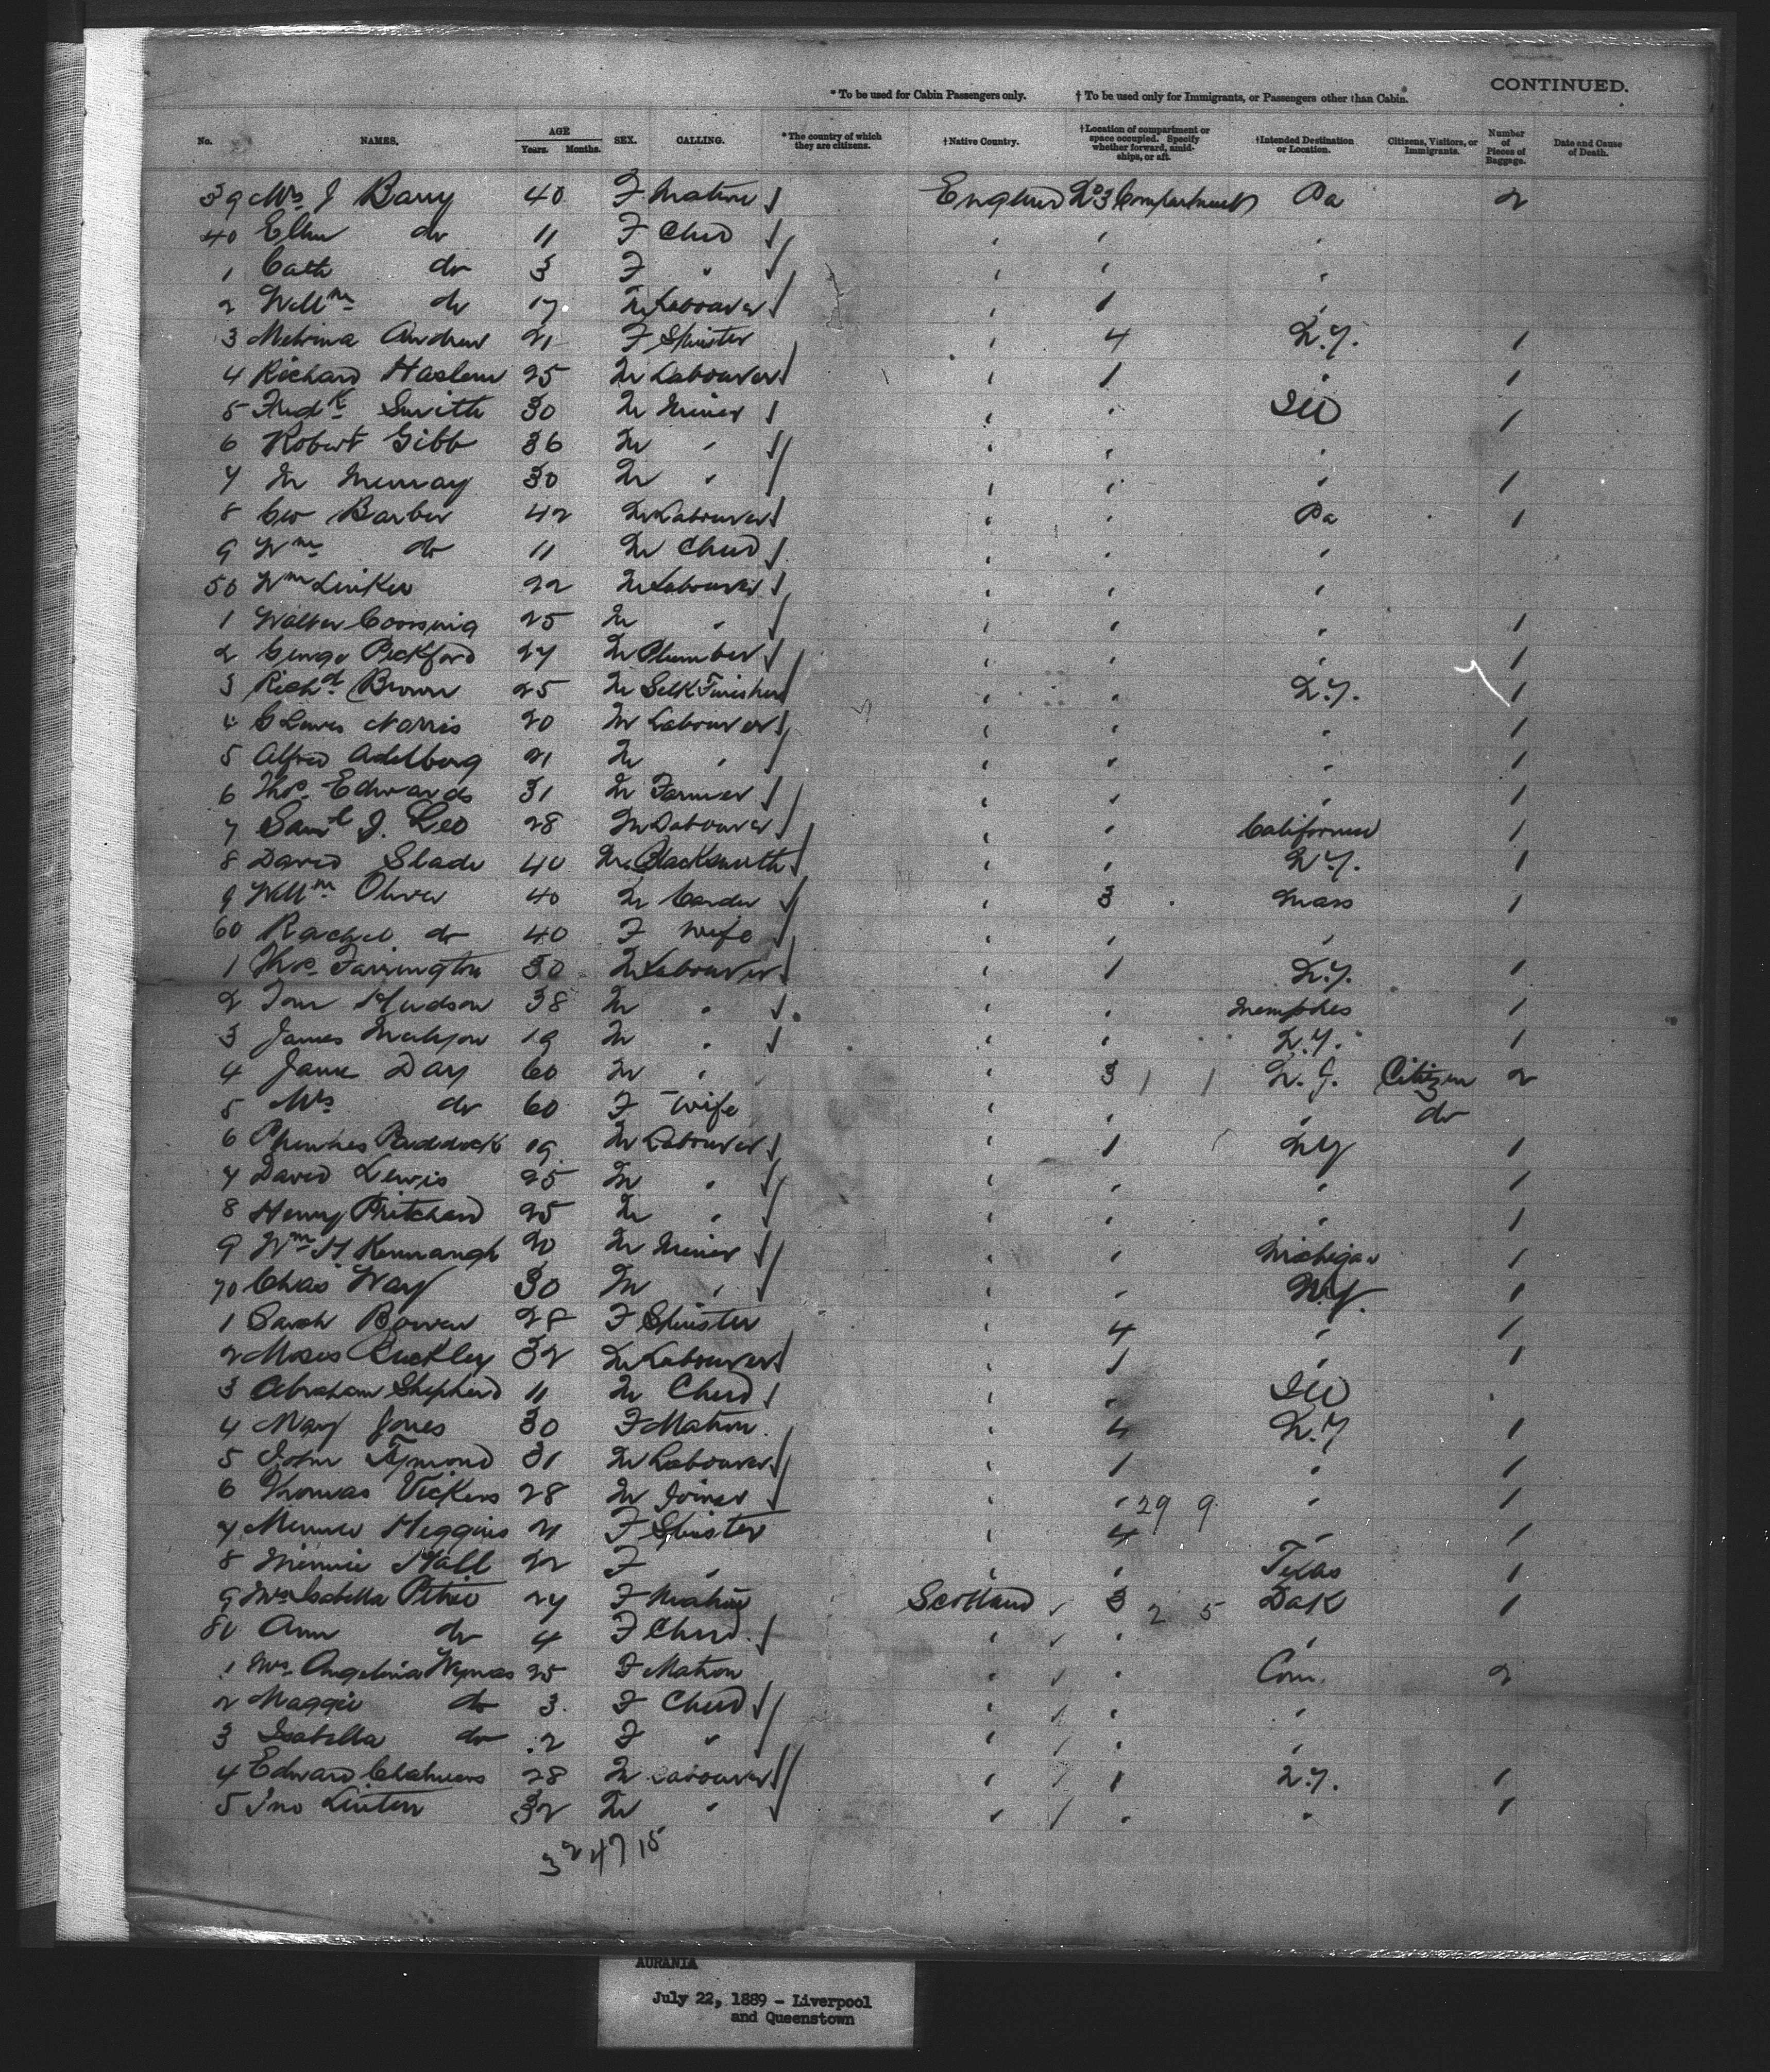 CONTINUED.
* To be used for Cabin Passengers only. † To be used only for Immigrants, or Passengers other than Cabin.
No. NAMES. AGE Years. Months. SEX. CALLING. * The country of which they are citizens. † Native Country. † Location of compartment or space occupied. Specify whether forward, amidships, or aft. † Intended Destination or Location. Citizens, Visitors, or Immigrants. Number of Pieces of Baggage. Date and Cause of Death.
39 Mrs J Barry 40 F Matron England No 3 Compartment Pa 2
40 Ellen do 11 F Child " " "
1 Cath do 3 F " " " "
2 Willm do 17 M Labourer " 1 "
3 Andrew 21 F Spinster " 4 N.Y. 1
4 Richard Haslem 25 M Labourer " 1 " 1
5 Fredk Smith 30 M Miner " " Ill 1
6 Robert Gibb 36 M " " " "
7 M Murray 30 M " " " " 1
8 Geo Barber 42 M Labourer " " Pa 1
9 Wm do 11 M Child " " "
50 Wm Linker 22 M Labourer " " "
1 Walter 25 M " " " " 1
2 George Pickford 27 M Plumber " " " 1
3 Richd Brown 25 M Silk Finisher " " N.Y. 1
4 Norris 20 M Labourer " " " 1
5 Alfred Adelberg 21 M " " " " 1
6 Thos. Edwards 31 M Farmer " " " 1
7 Saml J. Leo 28 M Labourer " " California 1
8 David Slade 40 M Blacksmith " " N.Y. 1
9 Willm Oliver 40 M Carder " 3 Mass 1
60 Rachel do 40 F Wife " " "
1 Thos. Farrington 30 M Labourer " 1 N.Y. 1
2 Tom Hudson 38 M " " " Memphis 1
3 James 19 M " " " N.Y. 1
4 Jame Day 60 M " " 3 1 1 N.J. Citizen 2
5 Mrs do 60 F Wife " " " do
6 Paddock 19 M Labourer " 1 NY 1
7 David Lewis 25 M " " " " 1
8 Henry Pritchard 25 M " " " " 1
9 Wm H Kennaugh 20 M Miner " " Michigan 1
70 Chas Way 30 M " " " N.Y. 1
1 Sarah Bowen 28 F Spinster " 4 " 1
2 Moses Buckley 32 M Labourer " 1 " 1
3 Abraham Shepherd 11 M Child " " Ill
4 Mary Jones 30 F Matron " 4 N.Y 1
5 John Tymond 31 M Labourer " 1 " 1
6 Thomas Vickers 28 M Joiner " " 29 9 " 1
7 Minnie Higgins 21 F Spinster " 4 " 1
8 Minnie Hall 22 F " " " Texas 1
9 Mrs Isabella Petrie 27 F Matron Scotland 3 2 5 Dak 1
80 Ann do 4 F Child " " "
1 Mrs. Angelina 25 F Matron " " Conn. 2
2 Maggie do 3 F Child " " "
3 Isabella do 2 F " " " "
4 Edward Chalmers 28 M Labourer " 1 N.Y. 1
5 Jno Linten 32 M " " " " 1
32 47 15
AURANIA
July 22, 1889 - Liverpool
and Queenstown